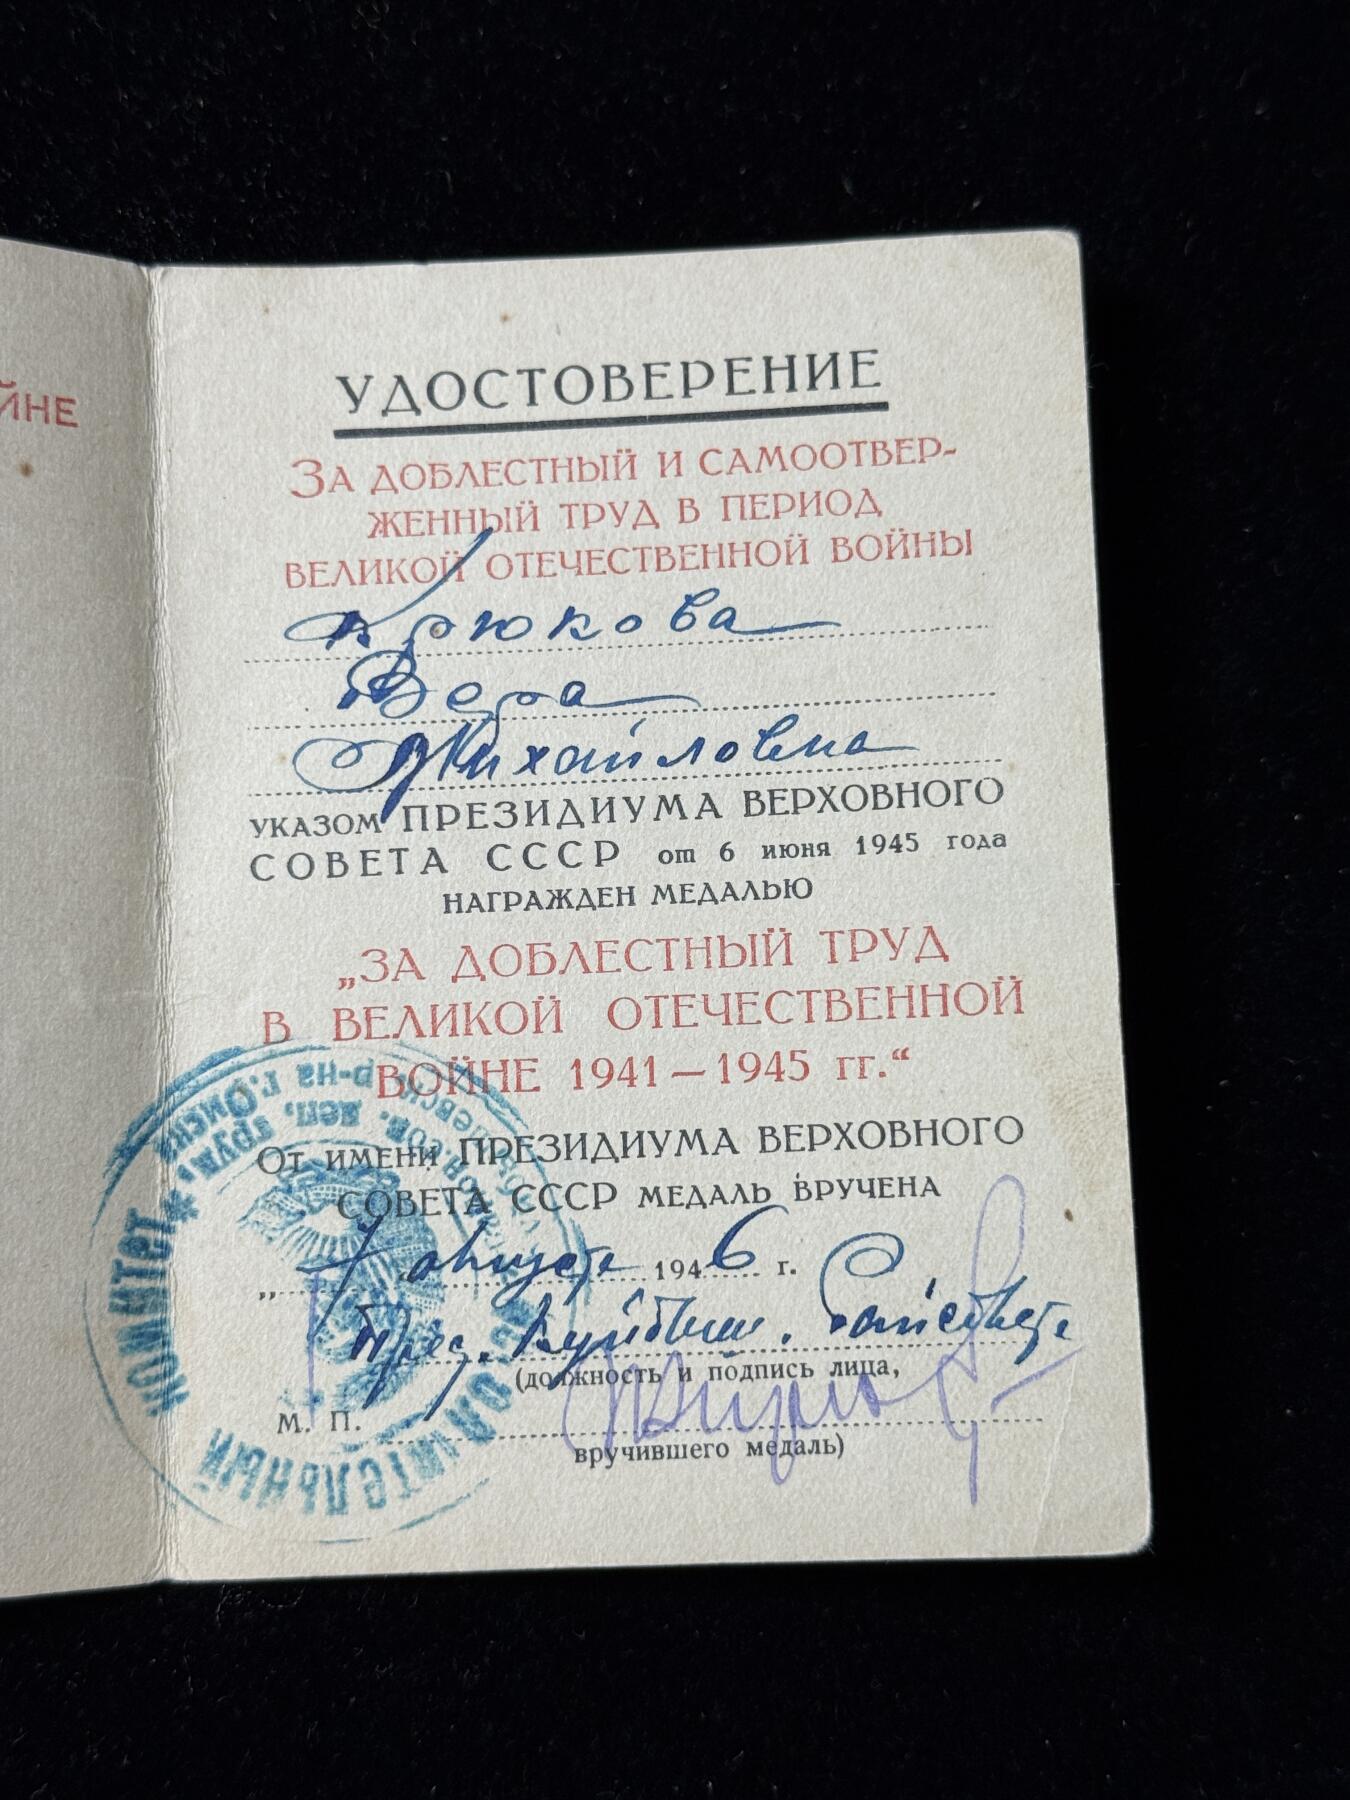 ЙНЕ
УДОСТОВЕРЕНИЕ
ЗА ДОБЛЕСТНЫЙ И САМООТВЕР-
ЖЕННЫЙ ТРУД В ПЕРИОД
ВЕЛИКОЙ ОТЕЧЕСТВЕННОЙ ВОЙНЫ
Крюкова
Вера
Михайловна
УКАЗОМ ПРЕЗИДИУМА ВЕРХОВНОГО
СОВЕТА СССР от 6 июня 1945 года
НАГРАЖДЕН МЕДАЛЬЮ
„ЗА ДОБЛЕСТНЫЙ ТРУД
В ВЕЛИКОЙ ОТЕЧЕСТВЕННОЙ
ВОЙНЕ 1941—1945 гг.“
ОТ ИМЕНИ ПРЕЗИДИУМА ВЕРХОВНОГО
СОВЕТА СССР МЕДАЛЬ ВРУЧЕНА
„ 7 августа 1946 г.
Пред. Куйбыш. Райсовета
(должность и подпись лица,
М. П.
вручившего медаль)
ИСПОЛНИТЕЛЬНЫЙ КОМИТЕТ
р-на г. Омска
труд. деп.